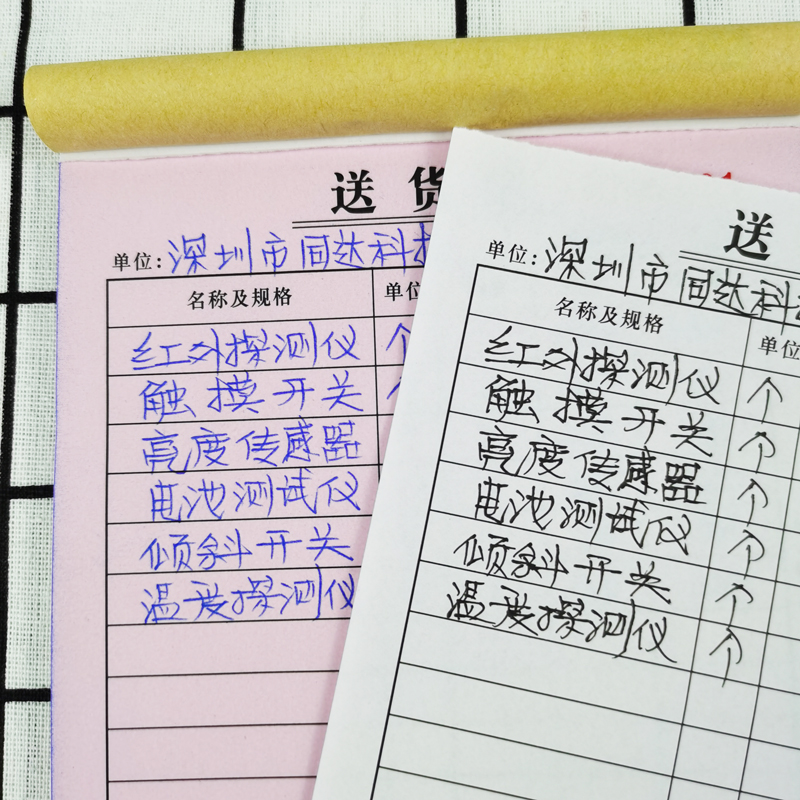 送 货
单位: 深圳市同达科技
名称及规格 单位
红外探测仪 个
触摸开关 个
亮度传感器
电池测试仪
倾斜开关
温度探测仪
送
单位: 深圳市同达科技
名称及规格 单位
红外探测仪 个
触摸开关 个
亮度传感器 个
电池测试仪 个
倾斜开关 个
温度探测仪 个